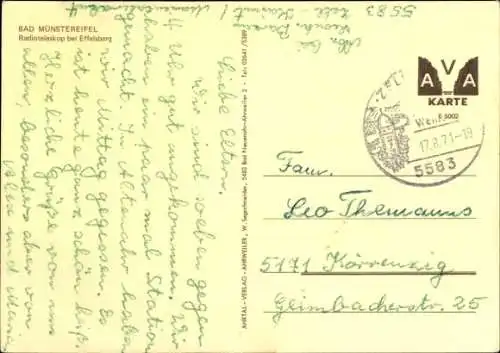 BAD MÜNSTEREIFEL
Radioteleskop bei Effelsberg
Liebe Eltern.
Wir sind soeben gegen
4 Uhr gut angekommen. Wir
haben ein paar mal Station
gemacht. In Altenahr haben
wir Mittag gegessen. Es
ist heute ganz schön heiß.
Herzliche Grüße von uns
allen, besonders aber von
und Maria
5583
Zell -
AHRTAL-VERLAG - AHRWEILER, W. Segschneider, 5483 Bad Neuenahr-Ahrweiler 2 - Tel. 02641 /5389
AVA
KARTE
E 5002
17.8.71-18
5583
Fam.
Leo Themanns
5171 Körrenzig
Glimbacherstr. 25